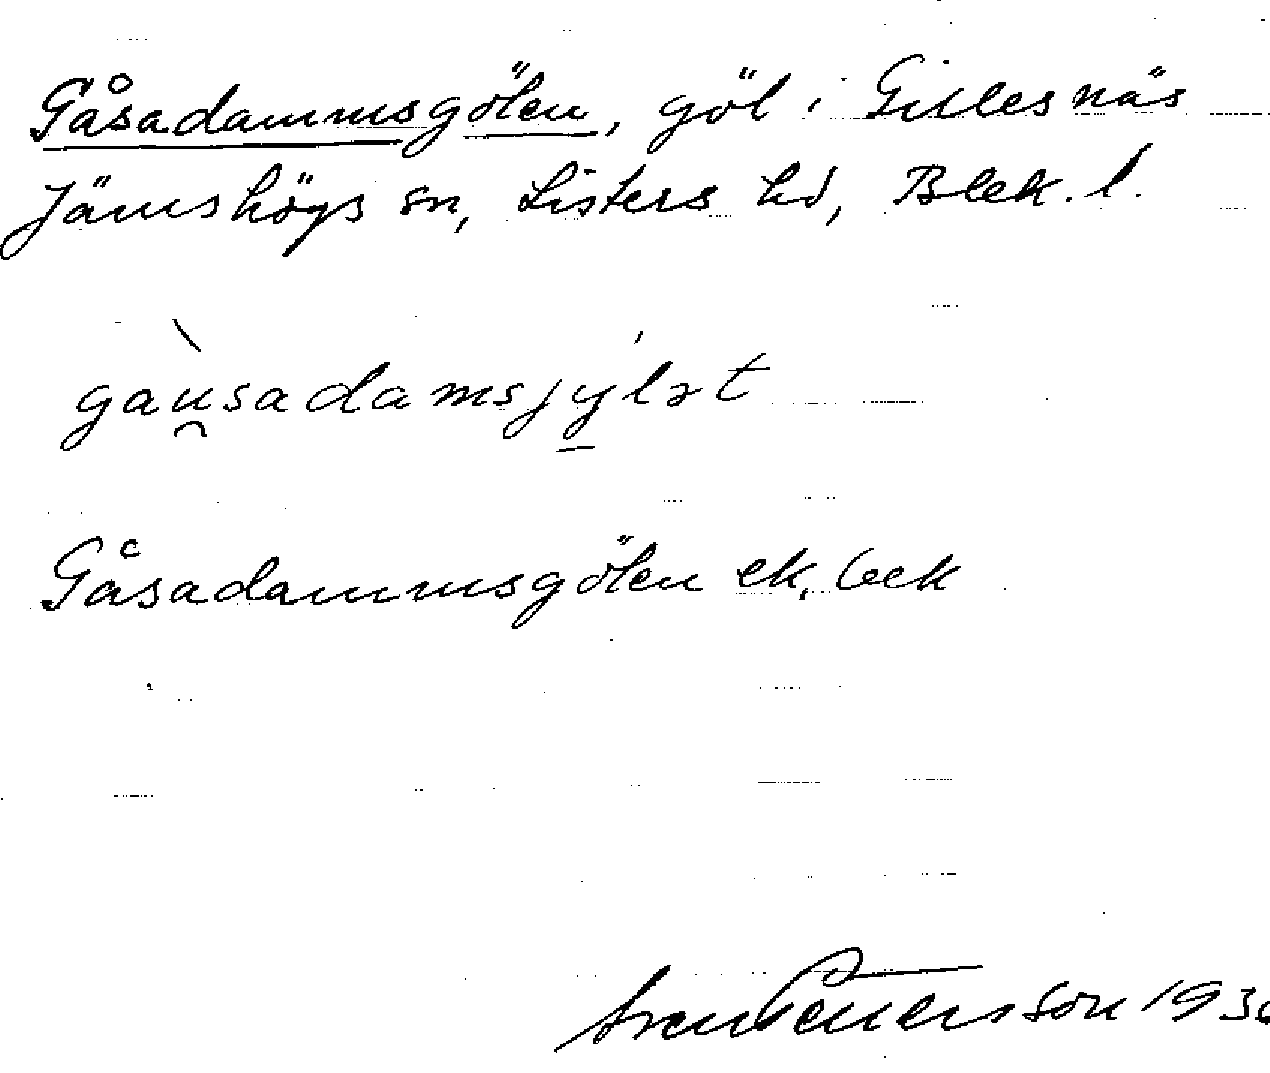 Gåsadammsgölen, göl i Gillesnäs
Jämshögs sn, Listers hd, Blek. l.
gausadamsjylət
Gåsadammsgölen ek. bek
Sven Petersson 193